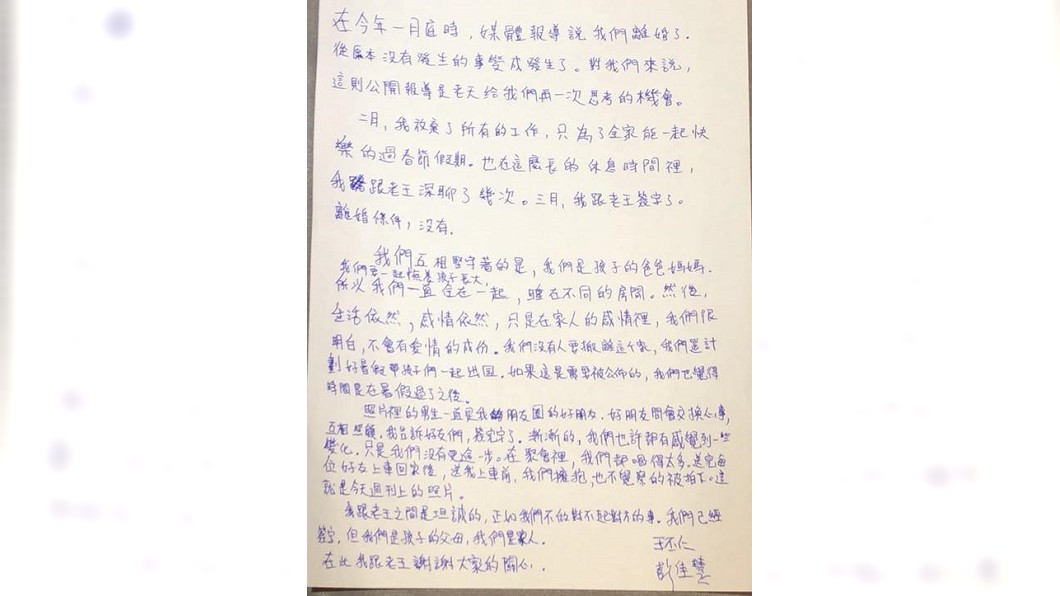 在今年一月底時，媒體報導說我們離婚了．
從原本沒有發生的事變成發生了。對我們來說，
這則公開報導是老天給我們再一次思考的機會。
二月，我放棄了所有的工作，只為了全家能一起快
樂的過春節假期．也在這麼長的休息時間裡，
我跟老王深聊了幾次。三月，我跟老王簽字了。
離婚條件，沒有．
我們互相堅守著的是，我們是孩子的爸爸媽媽．
我們要一起陪著孩子長大，
所以我們一直住在一起，睡在不同的房間。然後，
生活依然，感情依然，只是在家人的感情裡，我們很
明白，不會有愛情的成份。我們沒有人要搬離這个家，我們還計
劃好暑假帶孩子們一起出国．如果這是需要被公佈的，我們也覺得
時間是在暑假過了之後。
照片裡的男生一直是我朋友圈的好朋友．好朋友間會交換心事，
互相照顧．我告訴好友們，簽完字了．漸漸的，我們也許都有感覺到一些
變化．只是我們沒有更進一步。在聚會裡，我們都喝得太多．送完每
位好友上車回家後，送我上車前，我們擁抱，也不覺察的被拍下。這
就是今天週刊上的照片。
我跟老王之間是坦誠的，正如我們不做對不起對方的事．我們已經
簽字，但我們是孩子的父母，我們是家人．
王丕仁
在此我跟老王謝謝大家的關心．．
彭佳慧